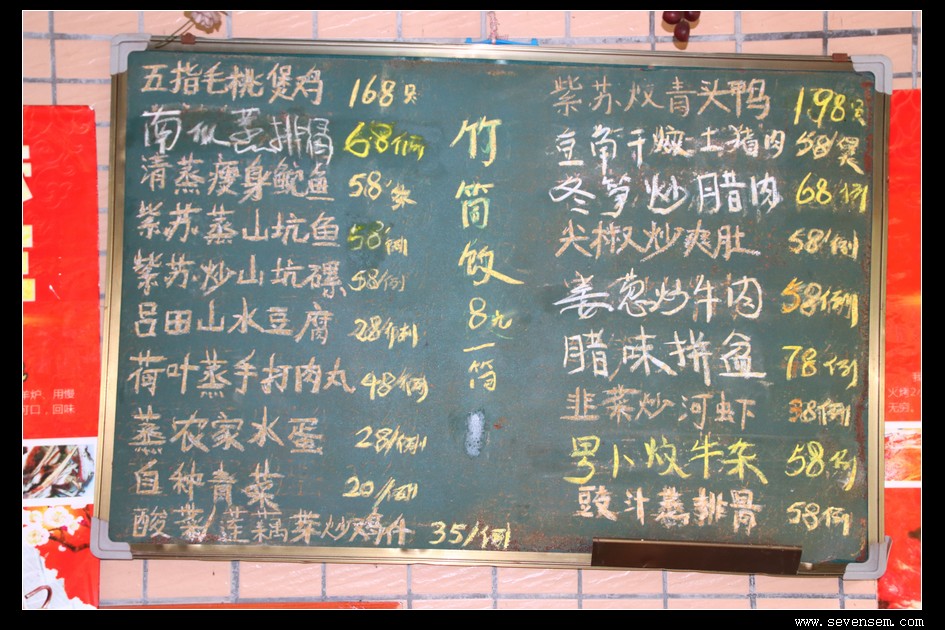 五指毛桃煲鸡 168只
南瓜蒸排骨 68/例
清蒸瘦身鲩鱼 58/条
紫苏蒸山坑鱼 58/例
紫苏炒山坑螺 58/例
吕田山水豆腐 28/例
荷叶蒸手打肉丸 48/例
蒸农家水蛋 28/例
自种青菜 20/例
酸 莲藕 炒鸡什 35/例
竹筒饭8元一筒
紫苏炆青头鸭 198只
干焿土猪肉 58/煲
冬笋炒腊肉 68/例
尖椒炒爽肚 58/例
姜葱炒牛肉 58/例
腊味拼盆 78/例
韭菜炒河虾 38/例
罗卜炆牛杂 58/例
豉汁蒸排骨 58/例
www.sevensem.com